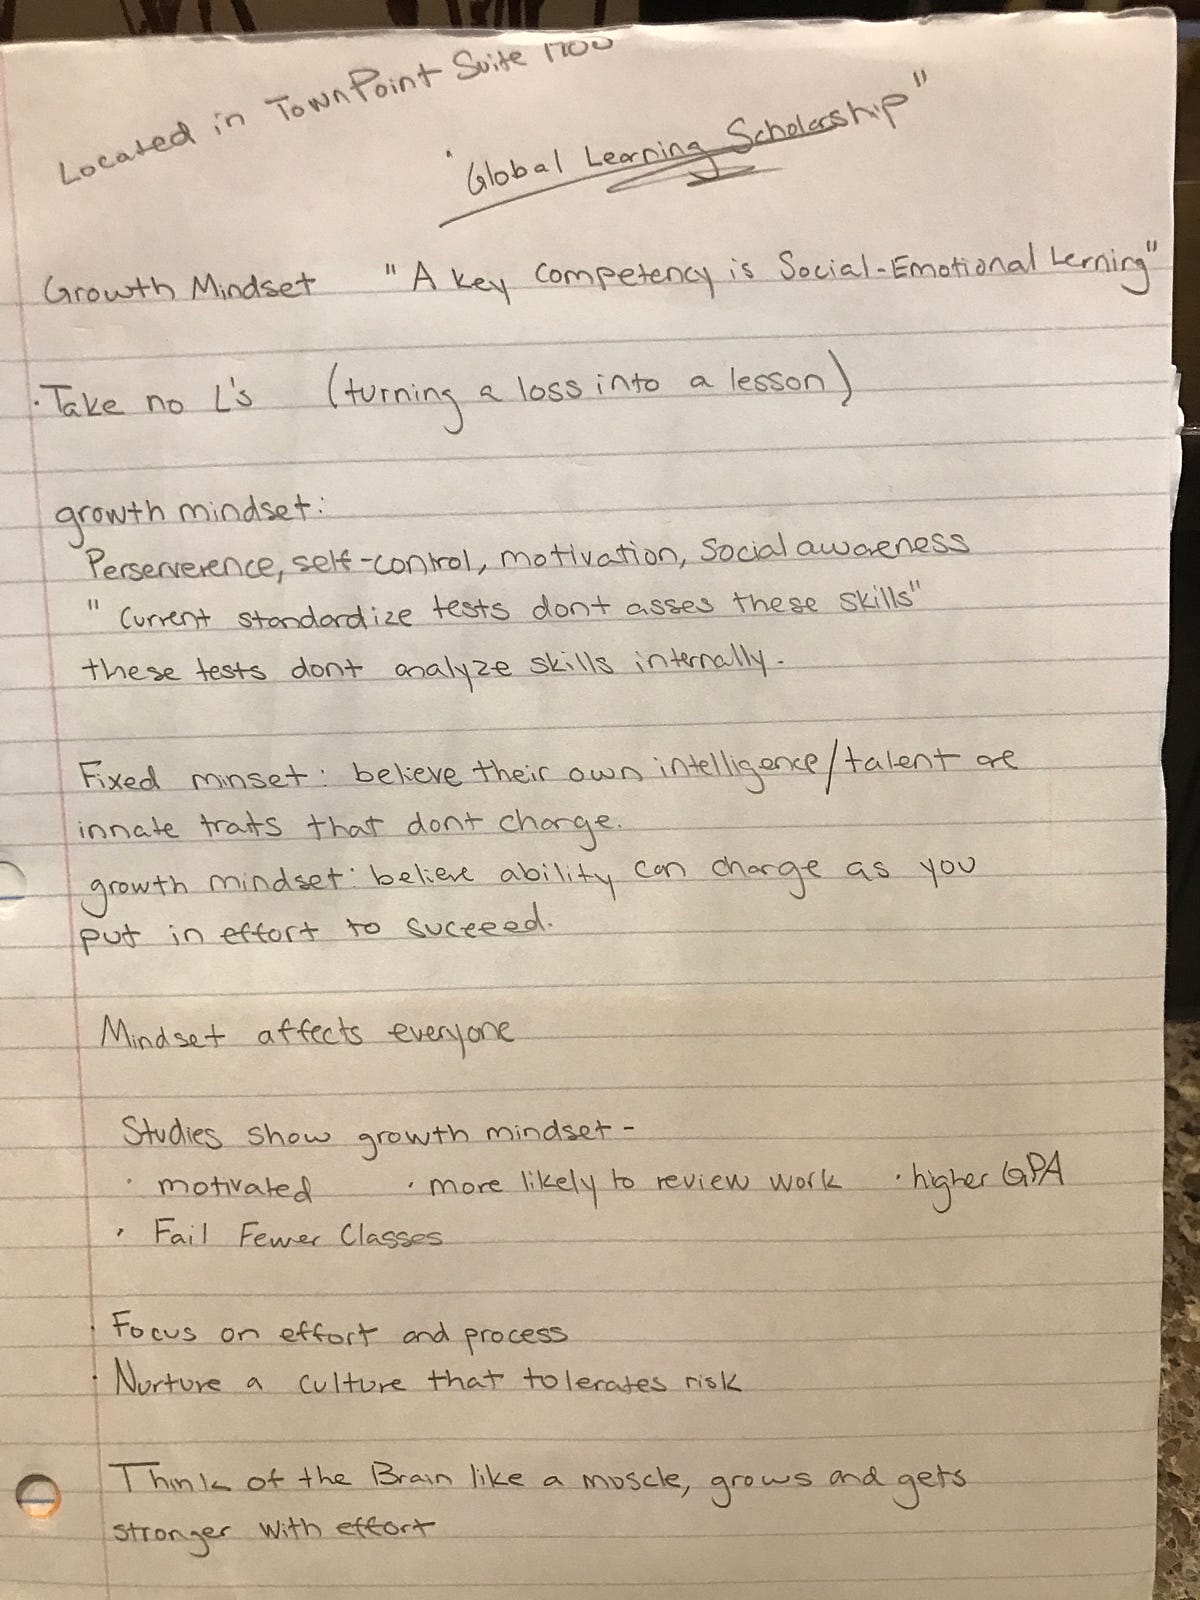 Located in TownPoint Suite 1700
"Global Learning Scholarship"
Growth Mindset "A key competency is Social-Emotional Lerning"
· Take no L's (turning a loss into a lesson)
growth mindset:
Perserverence, self-control, motivation, Social awareness
"Current standardize tests dont asses these skills"
these tests dont analyze skills internally.
Fixed minset: believe their own intelligence/talent are
innate traits that dont change.
growth mindset: believe ability can change as you
put in effort to succeed.
Mindset affects everyone
Studies show growth mindset -
· motivated · more likely to review work · higher GPA
· Fail Fewer Classes
· Focus on effort and process
· Nurture a culture that tolerates risk
Think of the Brain like a muscle, grows and gets
stronger with effort